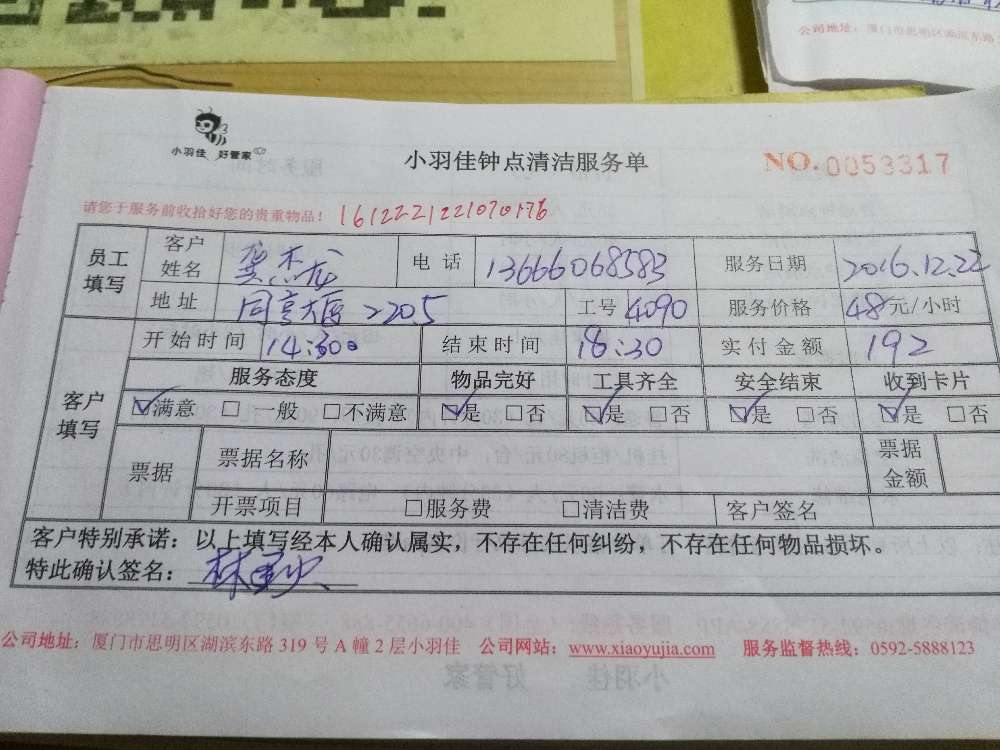 公司地址：厦门市思明区湖滨东路3
小羽佳 好管家
小羽佳钟点清洁服务单
NO.0053317
请您于服务前收拾好您的贵重物品！ 1612221221070176
员工填写 客户姓名 龚杰龙 电话 13666068583 服务日期 2016.12.22
地址 同亨大厦2205 工号 4090 服务价格 48元/小时
客户填写 开始时间 14:30 结束时间 18:30 实付金额 192
服务态度 物品完好 工具齐全 安全结束 收到卡片
☑满意 □一般 □不满意 ☑是 □否 ☑是 □否 ☑是 □否 ☑是 □否
票据 票据名称 票据金额
开票项目 □服务费 □清洁费 客户签名
客户特别承诺：以上填写经本人确认属实，不存在任何纠纷，不存在任何物品损坏。
特此确认签名：
公司地址：厦门市思明区湖滨东路 319 号 A 幢 2 层小羽佳 公司网站：www.xiaoyujia.com 服务监督热线：0592-5888123